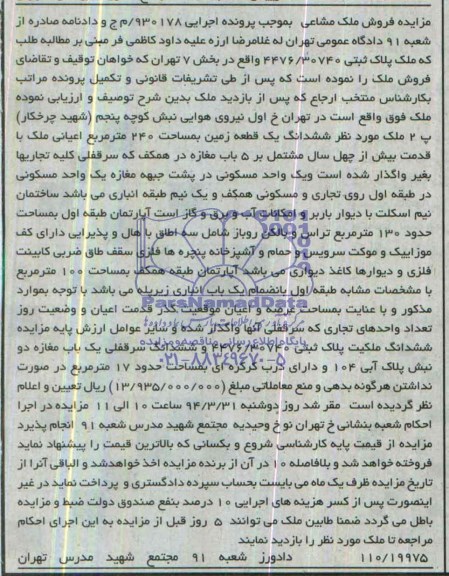 مزایده فروش ملک مشاعی بموجب پرونده اجرایی ۹۳۰۱۷۸/م ج و دادنامه صادره از
شعبه ۹۱ دادگاه عمومی تهران له غلامرضا ارزه علیه داود کاظمی فر مبنی بر مطالبه طلب
که ملک پلاک ثبتی ۴۴۷۶/۳۰۷۴۰ واقع در بخش ۷ تهران که خواهان توقیف و تقاضای
فروش ملک را نموده است که پس از طی تشریفات قانونی و تکمیل پرونده مراتب
بکارشناس منتخب ارجاع که پس از بازدید ملک بدین شرح توصیف و ارزیابی نموده
ملک فوق واقع است در تهران خ اول نیروی هوایی نبش کوچه پنجم (شهید چرخکار)
پ ۲ ملک مورد نظر ششدانگ یک قطعه زمین بمساحت ۲۴۰ مترمربع اعیانی ملک با
قدمت بیش از چهل سال مشتمل بر ۵ باب مغازه در همکف که سرقفلی کلیه تجاریها
بغیر واگذار شده است ویک واحد مسکونی در پشت جبهه مغازه یک واحد مسکونی
در طبقه اول روی تجاری و مسکونی همکف و یک نیم طبقه انباری می باشد ساختمان
نیم اسکلت با دیوار باربر و امکانات آب و برق و گاز است آپارتمان طبقه اول بمساحت
حدود ۱۳۰ مترمربع تراس و بالکن روباز شامل سه اطاق با هال و پذیرایی دارای کف
موزاییک و موکت سرویس و حمام و آشپزخانه پنجره ها فلزی سقف طاق ضربی کابینت
فلزی و دیوارها کاغذ دیواری می باشد آپارتمان طبقه همکف بمساحت ۱۰۰ مترمربع
با مشخصات مشابه طبقه اول بانضمام یک باب انباری زیرپله می باشد با توجه بموارد
مذکور و با عنایت بمساحت عرصه و اعیان موقعیت گذر قدمت اعیان و وضعیت روز
تعداد واحدهای تجاری که سرقفلی آنها واگذار شده و سایر عوامل ارزش پایه مزایده
ششدانگ ملکیت پلاک ثبتی ۴۴۷۶/۳۰۷۴۰ و ششدانگ سرقفلی یک باب مغازه دو
نبش پلاک آبی ۱۰۴ و دارای درب کرکره ای بمساحت حدود ۱۷ مترمربع در صورت
نداشتن هرگونه بدهی و منع معاملاتی مبلغ (۱۳/۹۳۵/۰۰۰/۰۰۰) ریال تعیین و اعلام
نظر گردیده است مقرر شد روز دوشنبه ۹۴/۳/۳۱ ساعت ۱۰ الی ۱۱ مزایده در اجرا
احکام شعبه بنشانی خ تهران نو خ وحیدیه مجتمع شهید مدرس شعبه ۹۱ انجام پذیرد
مزایده از قیمت پایه کارشناسی شروع و بکسانی که بالاترین قیمت را پیشنهاد نماید
فروخته خواهد شد و بلافاصله ۱۰ در آن از برنده مزایده اخذ خواهدشد و الباقی آنرا از
تاریخ مزایده ظرف یک ماه می بایست بحساب سپرده دادگستری و پرداخت نماید در غیر
اینصورت پس از کسر هزینه های اجرایی ۱۰ درصد بنفع صندوق دولت ضبط و مزایده
باطل می گردد ضمنا طابین ملک می توانند ۵ روز قبل از مزایده به این اجرای احکام
مراجعه تا ملک مورد نظر را بازدید نمایند
۱۱۰/۱۹۹۷۵ دادورز شعبه ۹۱ مجتمع شهید مدرس تهران
ParsNamadData
پایگاه اطلاع رسانی مناقصه و مزایده
۰۲۱-۸۸۳۴۹۶۷۰-۵